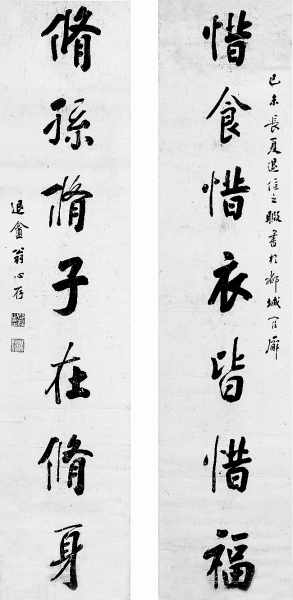 己未長夏退值之暇書於都城官廨
惜食惜衣皆惜福
脩孫脩子在脩身
退盦翁心存